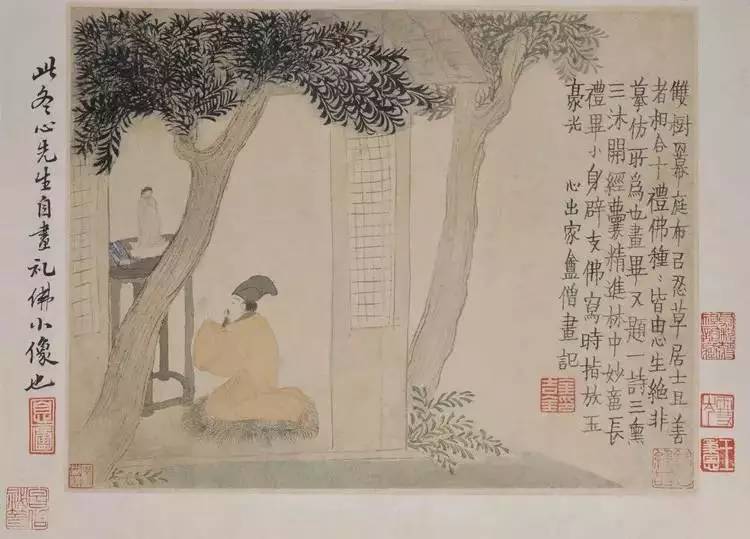 雙樹冪庭布㠯忍草居士且善
者相合十禮佛種〻皆由心生絶非
摹仿所爲也畫畢又題一詩三熏
三沐開經囊精進林中妙意長
禮畢小身辟支佛寫時指放玉
豪光
心出家盦僧畫記
此冬心先生自畫礼佛小像也